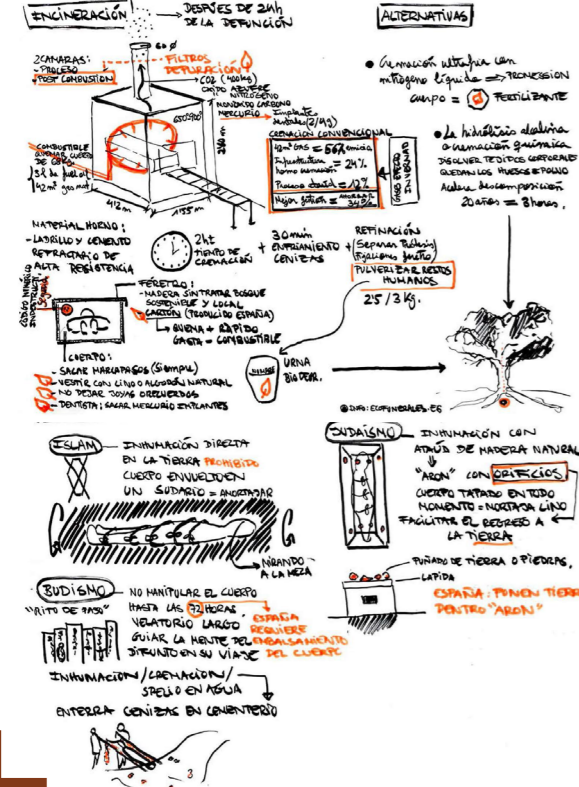 INCINERACIÓN
DESPUÉS DE 24h
DE LA DEFUNCIÓN
2 CAMARAS:
- PROCESO
- POST COMBUSTION
FILTROS
DEPURACIÓN
CO2 (400kg)
NITROGENO
MONÓXIDO CARBONO
MERCURIO
COMBUSTIBLE
QUEMAR CUERPO
42m³ gas nat
CREMACIÓN CONVENCIONAL
42m³ GAS = 56%
Infraestructura = 24%
horno cremación
= 12%
Mejor gestión =
34%
GASES EFECTO
INVERNAD
MATERIAL HORNO:
- LADRILLO Y CEMENTO
REFRACTARIO DE
ALTA RESISTENCIA
2h
TIEMPO DE
CREMACIÓN
+ 30min
ENFRIAMIENTO
CENIZAS
+ REFINACIÓN
PULVERIZAR RESTOS
HUMANOS
2'5 / 3 kg.
CÓDIGO NUMÉRICO
FERETRO:
- MADERA SIN TRATAR BOSQUE
SOSTENIBLE Y LOCAL
CARTÓN (PRODUCIDO ESPAÑA)
QUEMA + RÁPIDO
GASTA - COMBUSTIBLE
CUERPO:
- SACAR MARCAPASOS (Siempre)
- VESTIR CON LINO O ALGODÓN NATURAL
- NO DEJAR JOYAS O RECUERDOS
- DENTISTA: SACAR MERCURIO IMPLANTES
NOMBRE
URNA
BIODEGR.
ALTERNATIVAS
• Cremación ultrafria con
nitrógeno líquido ⇒ PROMESSION
cuerpo = FERTILIZANTE
• La hidrólisis alcalina
o cremación química
DISOLVER TEJIDOS CORPORALES
QUEDAN LOS HUESOS EN POLVO
Acelera descomposición
20 años = 3 horas.
INFO: ECOFUNERALES.ES
ISLAM
INHUMACIÓN DIRECTA
EN LA TIERRA PROHIBIDO
CUERPO ENVUELTO EN
UN SUDARIO = AMORTAJAR
MIRANDO
A LA MECA
JUDAÍSMO
INHUMACIÓN CON
ATAÚD DE MADERA NATURAL
"ARON" CON ORIFICIOS
CUERPO TAPADO EN TODO
MOMENTO = MORTAJA LINO
FACILITAR EL REGRESO A
LA TIERRA
PUÑADO DE TIERRA O PIEDRAS.
LAPIDA
ESPAÑA: PONEN TIERRA
DENTRO "ARON"
BUDISMO
"RITO DE PASO"
NO MANIPULAR EL CUERPO
HASTA LAS 72 HORAS.
VELATORIO LARGO
GUIAR LA MENTE DEL
DIFUNTO EN SU VIAJE
ESPAÑA
REQUIERE
EMBALSAMIENTO
DEL CUERPO
INHUMACION/CREMACION/
SPELIO EN AGUA
ENTERRA CENIZAS EN CEMENTERIO